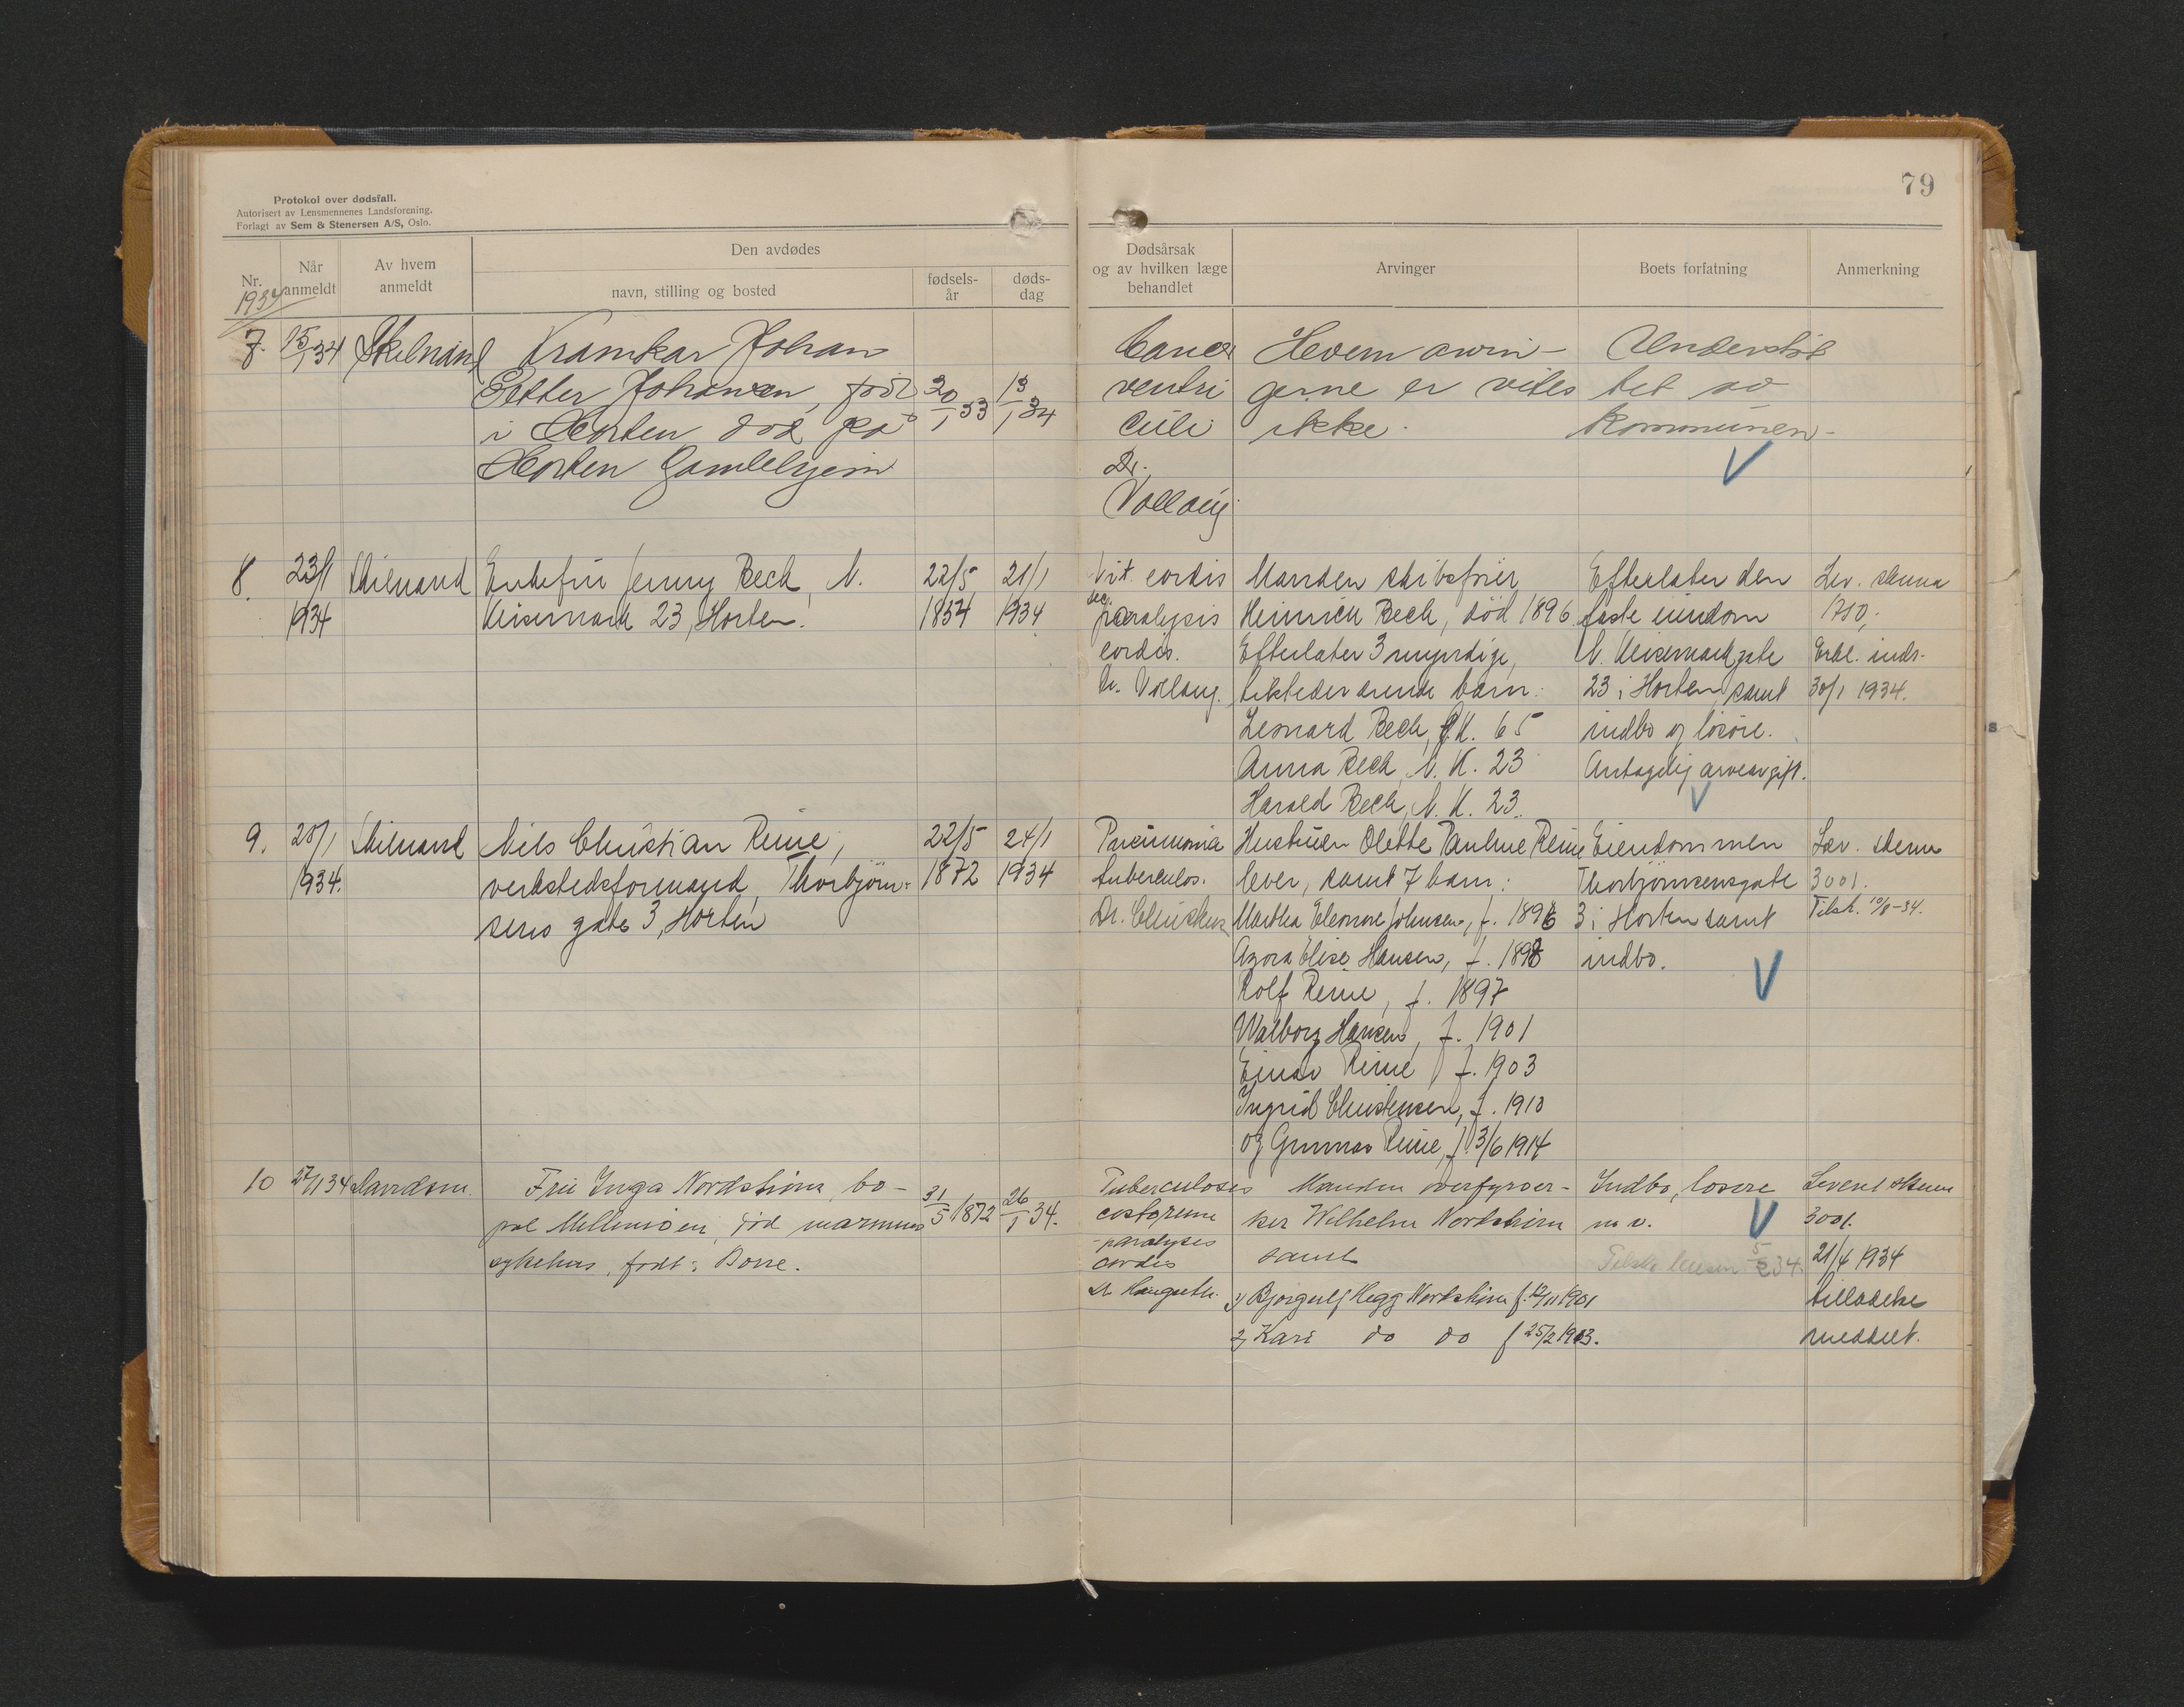 79
Protokol over dødsfall.
Autorisert av Lensmennenes Landsforening.
Forlagt av Sem & Stenersen A/S, Oslo.
Nr.
Når anmeldt
Av hvem anmeldt
Den avdødes
navn, stilling og bosted
fødsels-år
døds-dag
Dødsårsak
og av hvilken læge
behandlet
Arvinger
Boets forfatning
Anmerkning
1934
7. 15/1 34 Skilnand Kramkar Johan
Petter Johansen, född 30/1 53 13/1 34
i Horten död på
Horten Gamlehjem
Cancer
ventri
culi
Dr.
Vollaug
Hvem arvin-
gerne er vites
ikke.
Understöt
tet av
kommunen
8. 23/1 Skilnand Enkefru Jenny Bech, N. 22/5 21/1
1934 Keisemark 23, Horten. 1854 1934
Vit. cordis
paralysis
cordis.
Dr. Vollaug.
Manden skibsfører
Heinrich Bech, död 1896.
Efterlater 3 myndige,
tilstedeværende barn:
Leonard Bech, K. 65
Anna Bech, N. K. 23
Harald Bech, N. K. 23.
Efterlater den
faste eiendom
N. Keisemarkgate
23 i Horten, samt
indbo og lösöre.
Antagelig arveavgift.
Lev. skema
1710,
Erkl. inds.
30/1 1934.
9. 25/1 Skilnand Nils Christian Reine, 22/5 24/1
1934. verkstedsformand, Thorbjörn- 1872 1934
sens gate 3, Horten
Pneumonia
tuberculos.
Hustruen Olette Pauline Reine
lever, samt 7 barn:
Martha Eleonore Johnsen, f. 1896
Agora Elise Hansen, f. 1898
Rolf Reine, f. 1897
Walborg Hansen, f. 1901
Einar Reine, f. 1903
Ingrid Christensen, f. 1910
og Gunnar Reine, f. 3/6 1914
Eiendommen
Thorbjörnsensgate
3 i Horten samt
indbo.
Lev. skema
3001.
Tilsk. 10/8-34.
10 27/1 34 Davidsen. Frue Inga Nordström, bo-
pæl Mellemöen, död marinens 31/5 1872 26/1 34.
sykehus, født i Borre.
Tuberculosis
paralyses
cordis
Dr Haugseth.
Manden overfyrbö-
ter Wilhelm Nordström
samt
1) Bjorgulf Hegg Nordström f. 12/11 1901
2) Kari do do f 25/2 1903.
Indbo, lösöre
m v.
5/2 34.
Leveret skema
3001.
21/4 1934
tilladelse
meddelt.